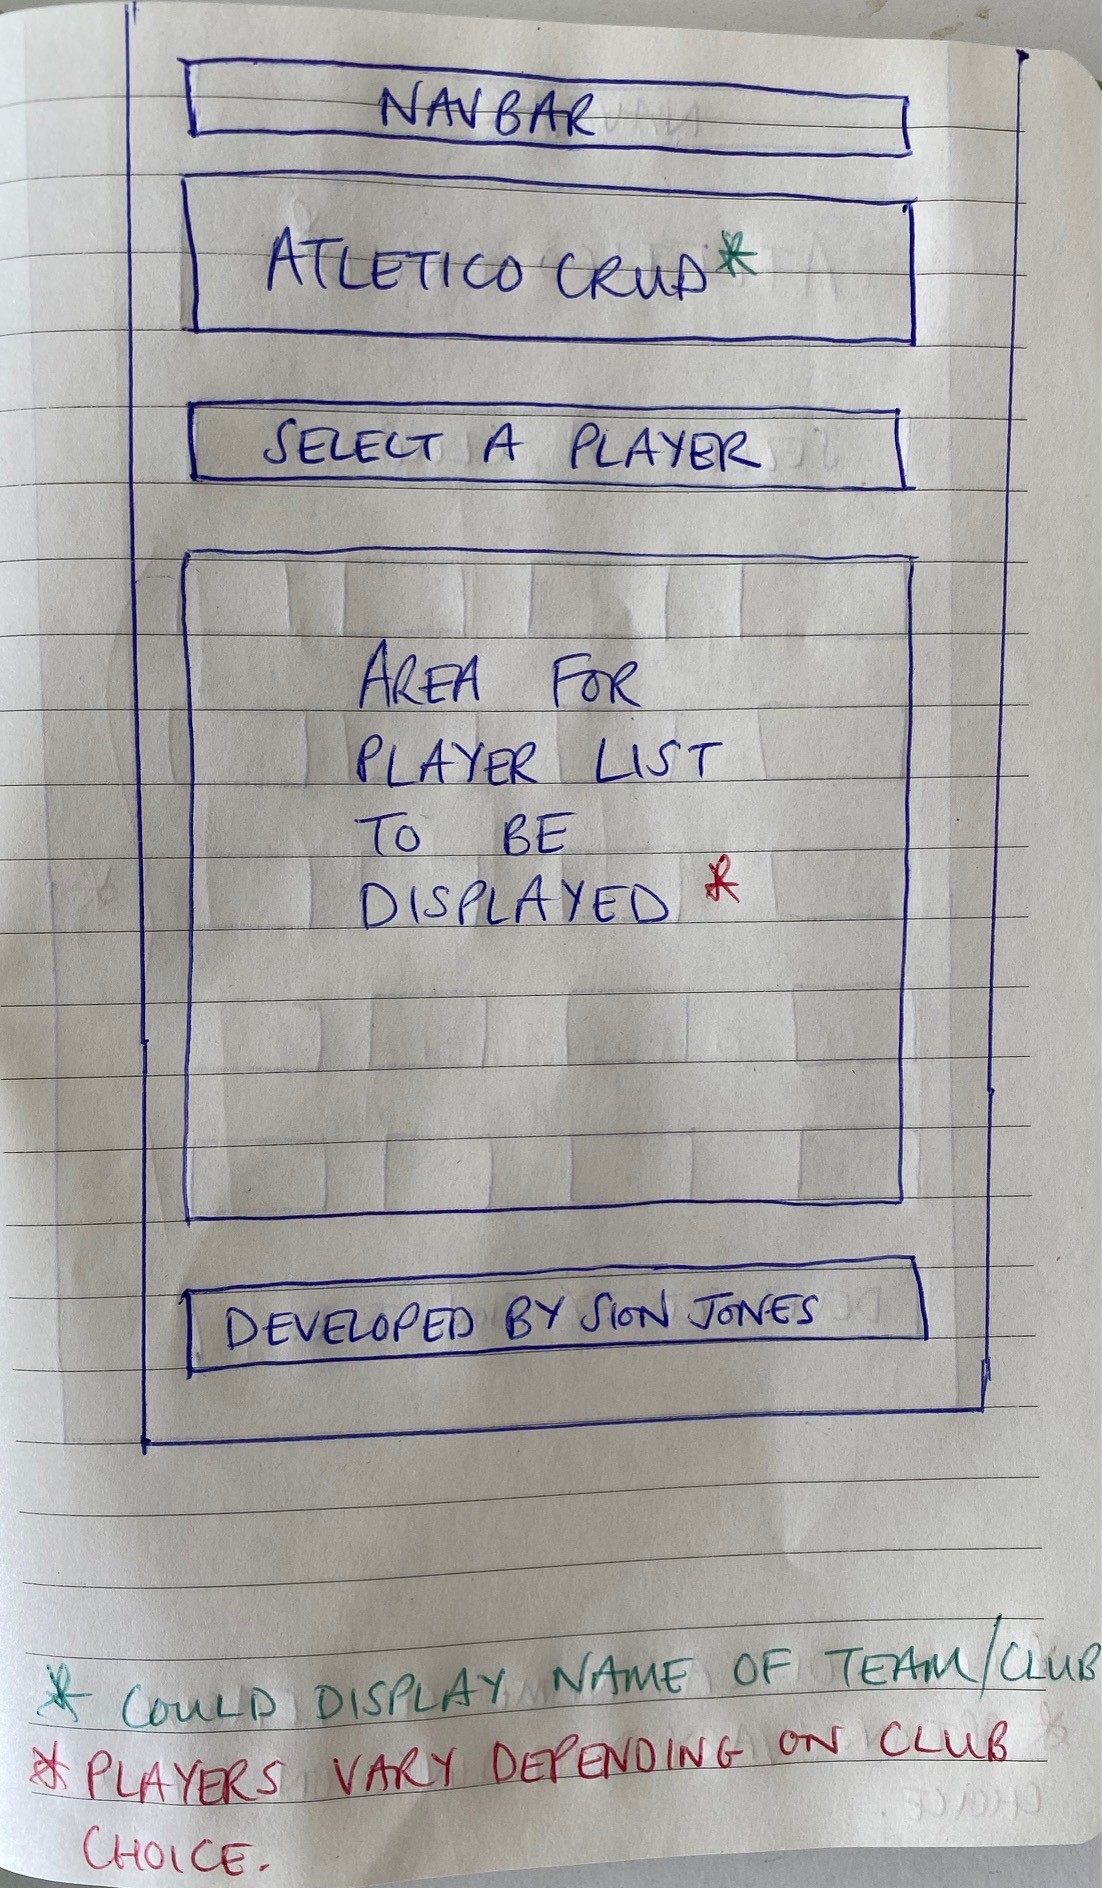 NAVBAR
ATLETICO CRUD*
SELECT A PLAYER
AREA FOR
PLAYER LIST
TO BE
DISPLAYED *
DEVELOPED BY SION JONES
* COULD DISPLAY NAME OF TEAM/CLUB
* PLAYERS VARY DEPENDING ON CLUB
CHOICE.